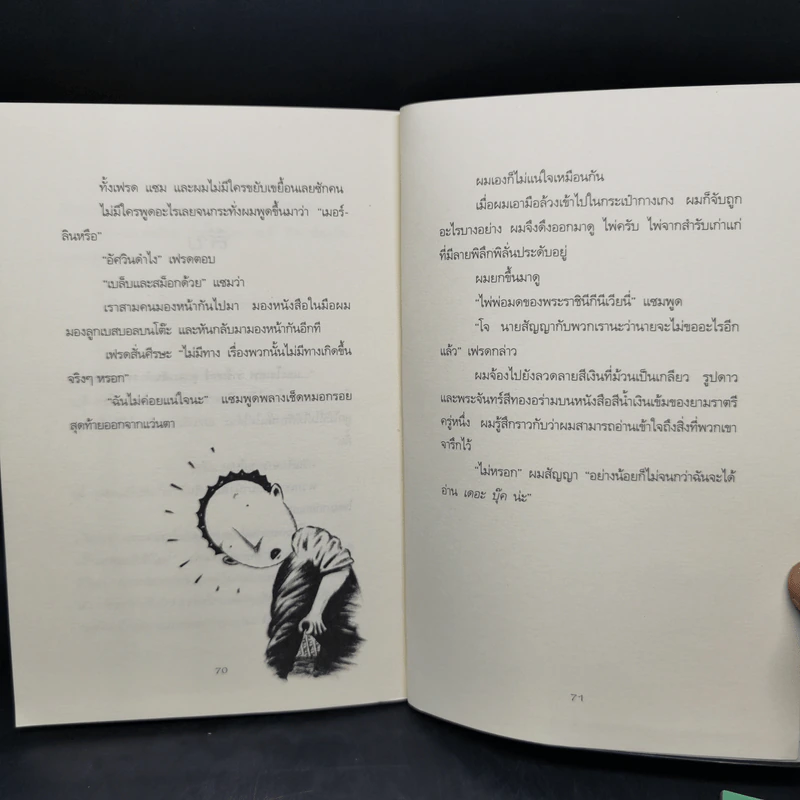 ทั้งเฟรด แซม และผมไม่มีใครขยับเขยื้อนเลยซักคน
ไม่มีใครพูดอะไรเลยจนกระทั่งผมพูดขึ้นมาว่า "เมอร์-
ลินหรือ"
"อัศวินดำไง" เฟรดตอบ
"เบล็บและสม็อกด้วย" แซมว่า
เราสามคนมองหน้ากันไปมา มองหนังสือในมือผม
มองลูกเบสบอลบนโต๊ะ และหันกลับมามองหน้ากันอีกที
เฟรดสั่นศีรษะ "ไม่มีทาง เรื่องพวกนั้นไม่มีทางเกิดขึ้น
จริงๆ หรอก"
"ฉันไม่ค่อยแน่ใจนะ" แซมพูดพลางเช็ดหมอกรอย
สุดท้ายออกจากแว่นตา
70
ผมเองก็ไม่แน่ใจเหมือนกัน
เมื่อผมเอามือล้วงเข้าไปในกระเป๋ากางเกง ผมก็จับถูก
อะไรบางอย่าง ผมจึงดึงออกมาดู ไพ่ครับ ไพ่จากสำรับเก่าแก่
ที่มีลายพิลึกพิลั่นประดับอยู่
ผมยกขึ้นมาดู
"ไพ่พ่อมดของพระราชินีกีนีเวียนี่" แซมพูด
"โจ นายสัญญากับพวกเรานะว่านายจะไม่ขออะไรอีก
แล้ว" เฟรดกล่าว
ผมจ้องไปยังลวดลายสีเงินที่ม้วนเป็นเกลียว รูปดาว
และพระจันทร์สีทองอร่ามบนหนังสือสีน้ำเงินเข้มของยามราตรี
ครู่หนึ่ง ผมรู้สึกราวกับว่าผมสามารถอ่านเข้าใจถึงสิ่งที่พวกเขา
จารึกไว้
"ไม่หรอก" ผมสัญญา "อย่างน้อยก็ไม่จนกว่าฉันจะได้
อ่าน เดอะ บุ๊ค น่ะ"
71